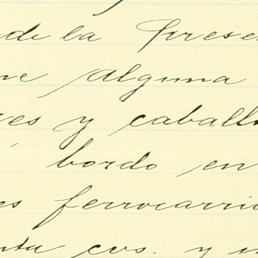 de la prese
ne alguna
es y caball
bordo en
es ferrocarri
nta cvs. y